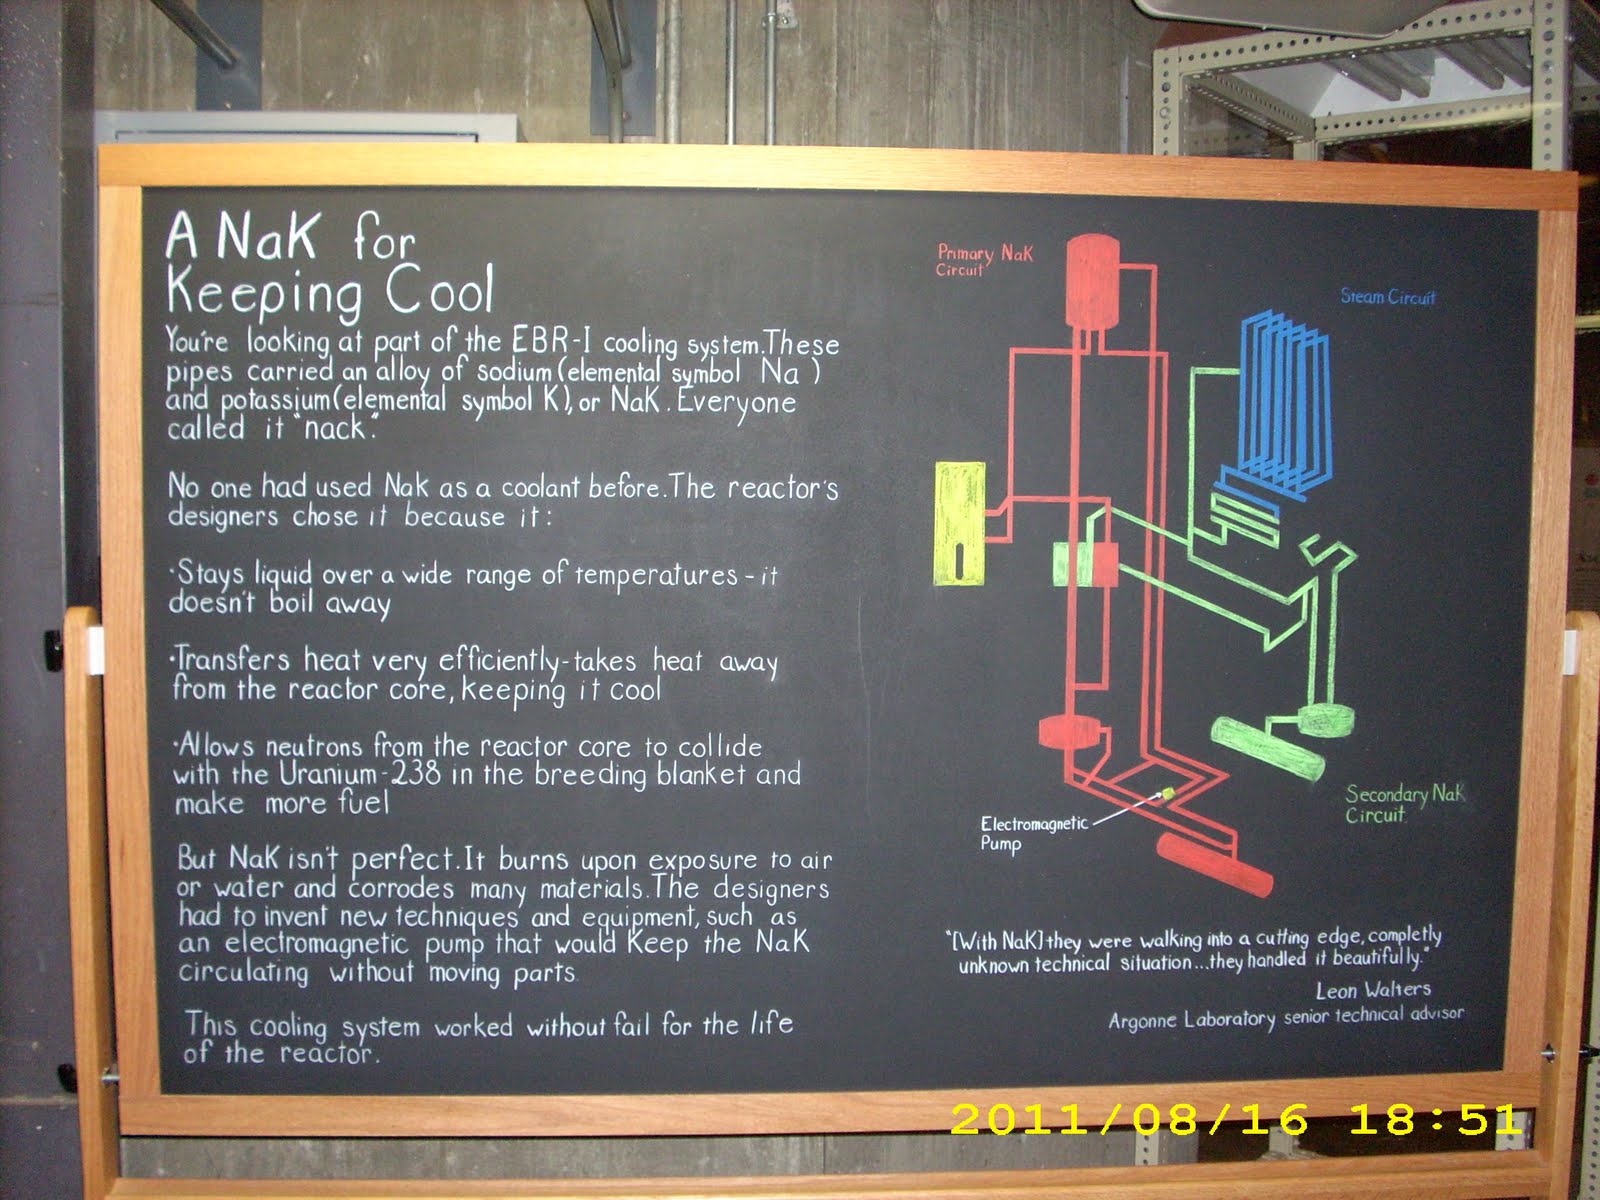 A NaK for
Keeping Cool
You're looking at part of the EBR-I cooling system. These
pipes carried an alloy of sodium (elemental symbol Na)
and potassium (elemental symbol K), or NaK. Everyone
called it "nack".
No one had used Nak as a coolant before. The reactor's
designers chose it because it:
·Stays liquid over a wide range of temperatures - it
doesn't boil away
·Transfers heat very efficiently - takes heat away
from the reactor core, keeping it cool
·Allows neutrons from the reactor core to collide
with the Uranium-238 in the breeding blanket and
make more fuel
But NaK isn't perfect. It burns upon exposure to air
or water and corrodes many materials. The designers
had to invent new techniques and equipment, such as
an electromagnetic pump that would keep the NaK
circulating without moving parts.
This cooling system worked without fail for the life
of the reactor.
Primary NaK
Circuit
Steam Circuit
Electromagnetic
Pump
Secondary NaK
Circuit
"[With NaK] they were walking into a cutting edge, completly
unknown technical situation...they handled it beautifully."
Leon Walters
Argonne Laboratory senior technical advisor
2011/08/16 18:51